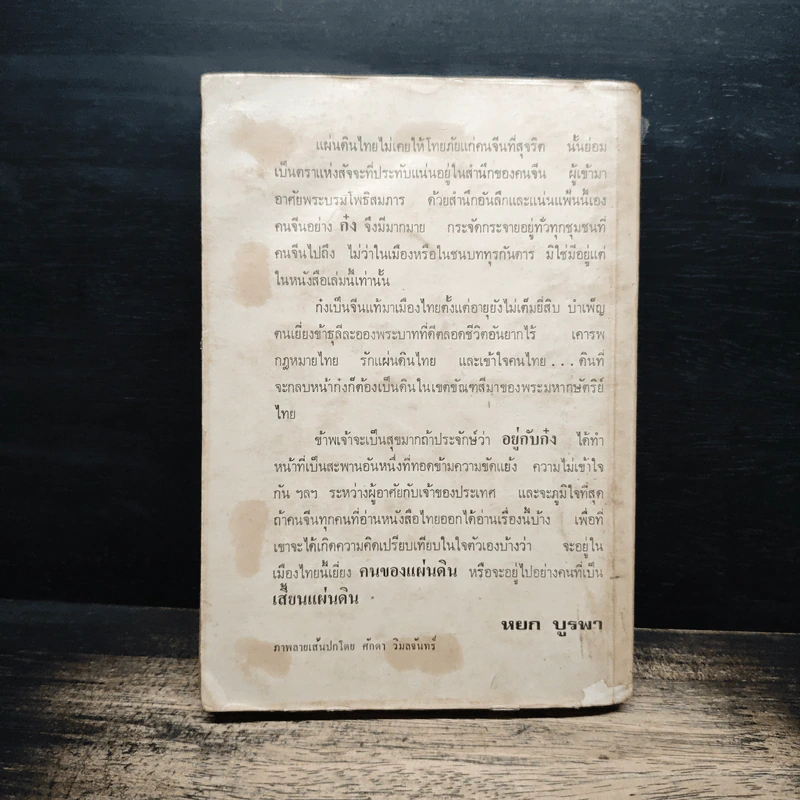 แผ่นดินไทยไม่เคยให้โทยภัยแก่คนจีนที่สุจริต นั้นย่อม
เป็นตราแห่งสัจจะที่ประทับแน่นอยู่ในสำนึกของคนจีน ผู้เข้ามา
อาศัยพระบรมโพธิสมภาร ด้วยสำนึกอันลึกและแน่นแฟ้นนี้เอง
คนจีนอย่าง ก๋ง จึงมีมากมาย กระจัดกระจายอยู่ทั่วทุกชุมชนที่
คนจีนไปถึง ไม่ว่าในเมืองหรือในชนบททุรกันดาร มิใช่มีอยู่แต่
ในหนังสือเล่มนี้เท่านั้น
ก๋งเป็นจีนแท้มาเมืองไทยตั้งแต่อายุยังไม่เต็มยี่สิบ บำเพ็ญ
ตนเยี่ยงข้าธุลีละอองพระบาทที่ดีตลอดชีวิตอันยากไร้ เคารพ
กฎหมายไทย รักแผ่นดินไทย และเข้าใจคนไทย . . . ดินที่
จะกลบหน้าก๋งก็ต้องเป็นดินในเขตขัณฑสีมาของพระมหากษัตริย์
ไทย
ข้าพเจ้าจะเป็นสุขมากถ้าประจักษ์ว่า อยู่กับก๋ง ได้ทำ
หน้าที่เป็นสะพานอันหนึ่งที่ทอดข้ามความขัดแย้ง ความไม่เข้าใจ
กัน ฯลฯ ระหว่างผู้อาศัยกับเจ้าของประเทศ และจะภูมิใจที่สุด
ถ้าคนจีนทุกคนที่อ่านหนังสือไทยออกได้อ่านเรื่องนี้บ้าง เพื่อที่
เขาจะได้เกิดความคิดเปรียบเทียบในใจตัวเองบ้างว่า จะอยู่ใน
เมืองไทยนี้เยี่ยง คนของแผ่นดิน หรือจะอยู่ไปอย่างคนที่เป็น
เสี้ยนแผ่นดิน
หยก บูรพา
ภาพลายเส้นปกโดย ศักดา วิมลจันทร์